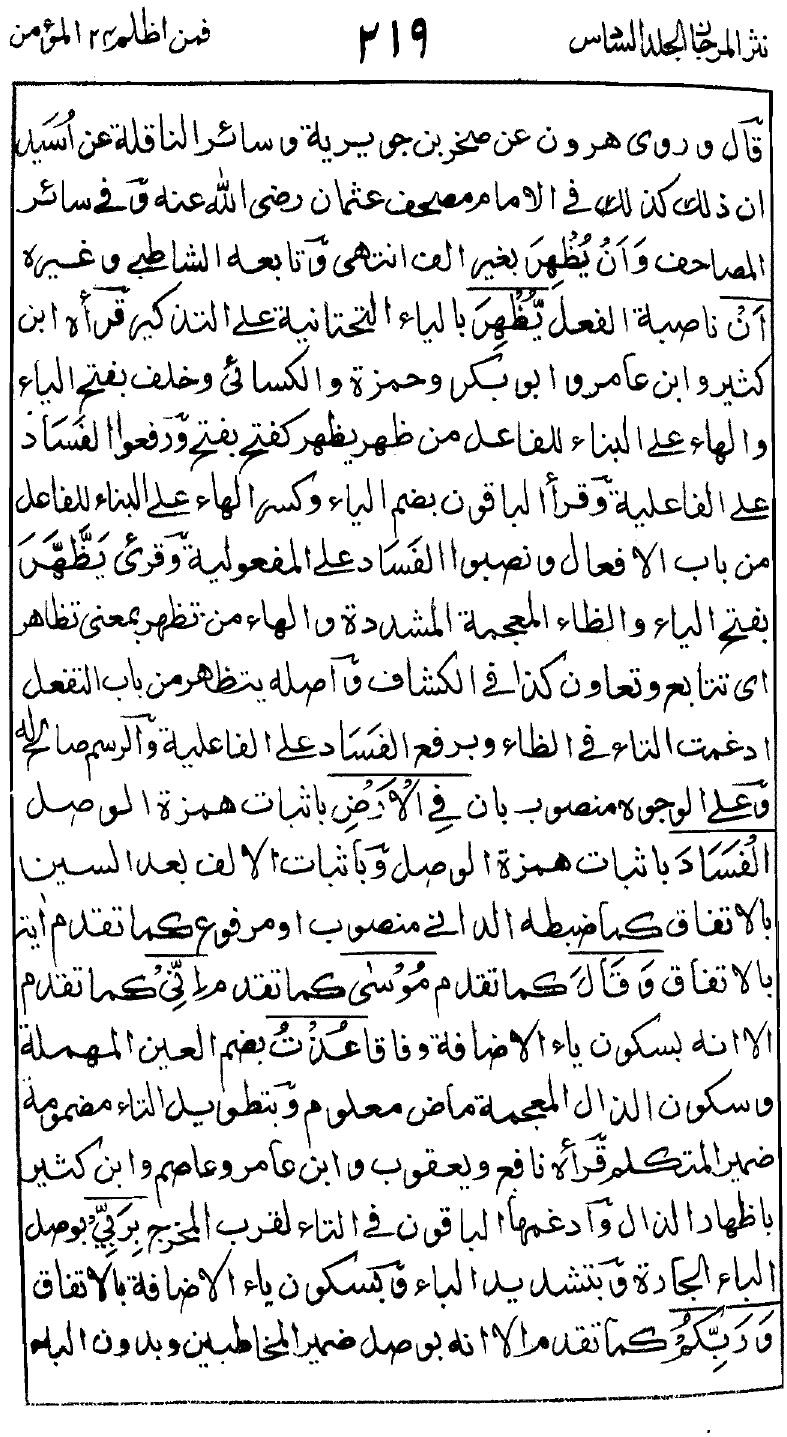 نثر المرجان الجلد السادس ٢١٩ فمن اظلم ٢٤ المؤمن
قال وروى هرون عن صخر بن جويرية وسائر الناقلة عن اُسَيد
ان ذلك كذلك في الامام مصحف عثمان رضى الله عنه وفي سائر
المصاحف وَاَنْ يُظْهِرَ بغير الف انتهى وتابعه الشاطبي وغيره
اَنْ ناصبة الفعل يُّظْهِرَ بالياء التحتانية على التذكير قرأه ابن
كثير وابن عامر وابو بكر وحمزة والكسائي وخلف بفتح الياء
والهاء على البناء للفاعل من ظهر يظهر كفتح يفتح ورفعوا الفَسَادُ
على الفاعلية وقرأ الباقون بضم الياء وكسر الهاء على البناء للفاعل
من باب الافعال ونصبوا الفَسَاد على المفعولية وقرئ يَظَّهَّرَ
بفتح الياء والظاء المعجمة المشددة والهاء من تظهر بمعنى تظاهر
اى تتابع وتعاون كذا في الكشاف واصله يتظاهر من باب التفعل
ادغمت التاء في الظاء وبرفع الفَسَاد على الفاعلية والرسم صالح له
وعلى الوجوه منصوب بان فِي الْاَرْضِ باثبات همزة الوصل
الْفَسَادَ باثبات همزة الوصل وباثبات الالف بعد السين
بالاتفاق كما ضبطه الداني منصوب او مرفوع كما تقدم اية
بالاتفاق وَقَالَ كما تقدم مُوْسٰى كما تقدم اِنِّيْ كما تقدم
الا انه بسكون ياء الاضافة وفاقا عُذْتُ بضم العين المهملة
وسكون الذال المعجمة ماض معلوم وبتطويل التاء مضمومة
ضمير المتكلم قرأه نافع ويعقوب وابن عامر وعاصم وابن كثير
باظهار الذال وادغمها الباقون في التاء لقرب المخرج بِرَبِّيْ بوصل
الباء الجارة وبتشديد الباء وبسكون ياء الاضافة بالاتفاق
وَرَبِّكُمْ كما تقدم الا انه بوصل ضمير المخاطبين وبدون الباء